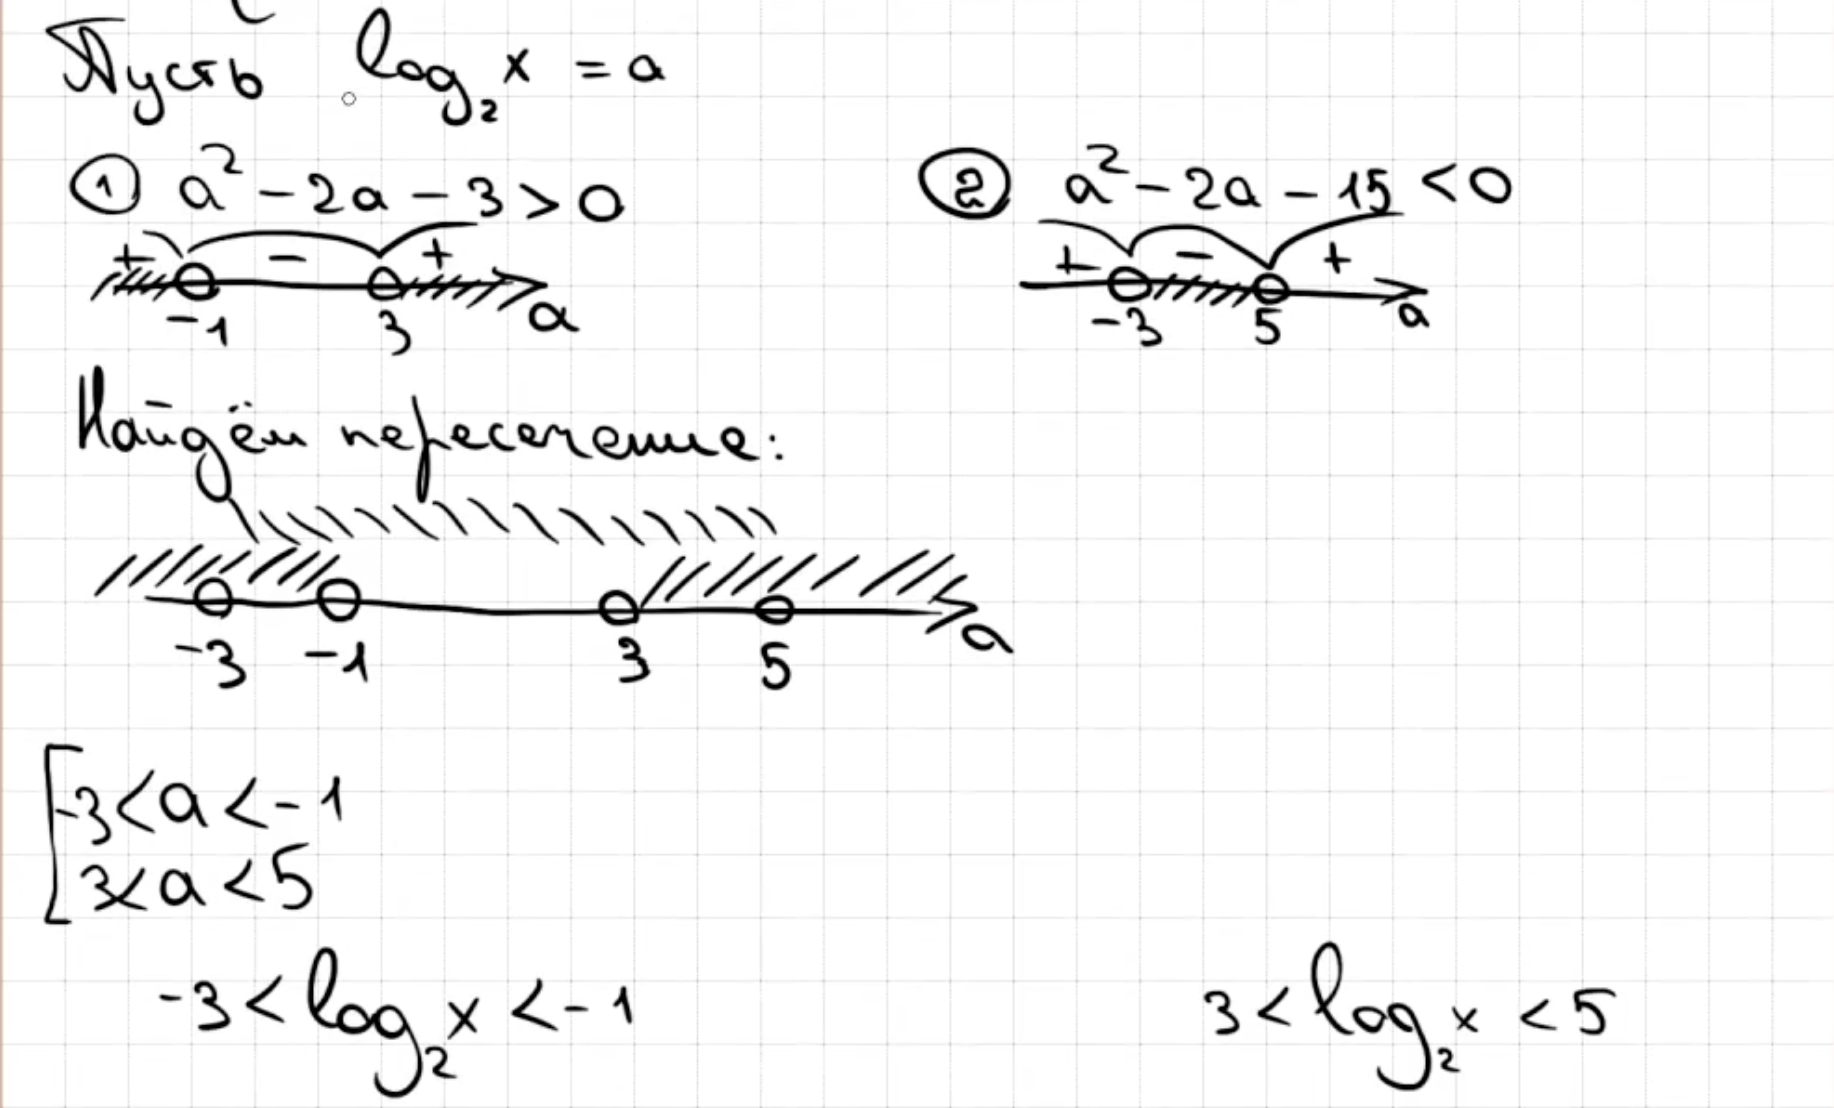 Пусть log₂x = a
① a² - 2a - 3 > 0
+ - +
-1 3 a
② a² - 2a - 15 < 0
+ - +
-3 5 a
Найдём пересечение:
-3 -1 3 5 a
[ -3 < a < -1
3 < a < 5
-3 < log₂x < -1
3 < log₂x < 5